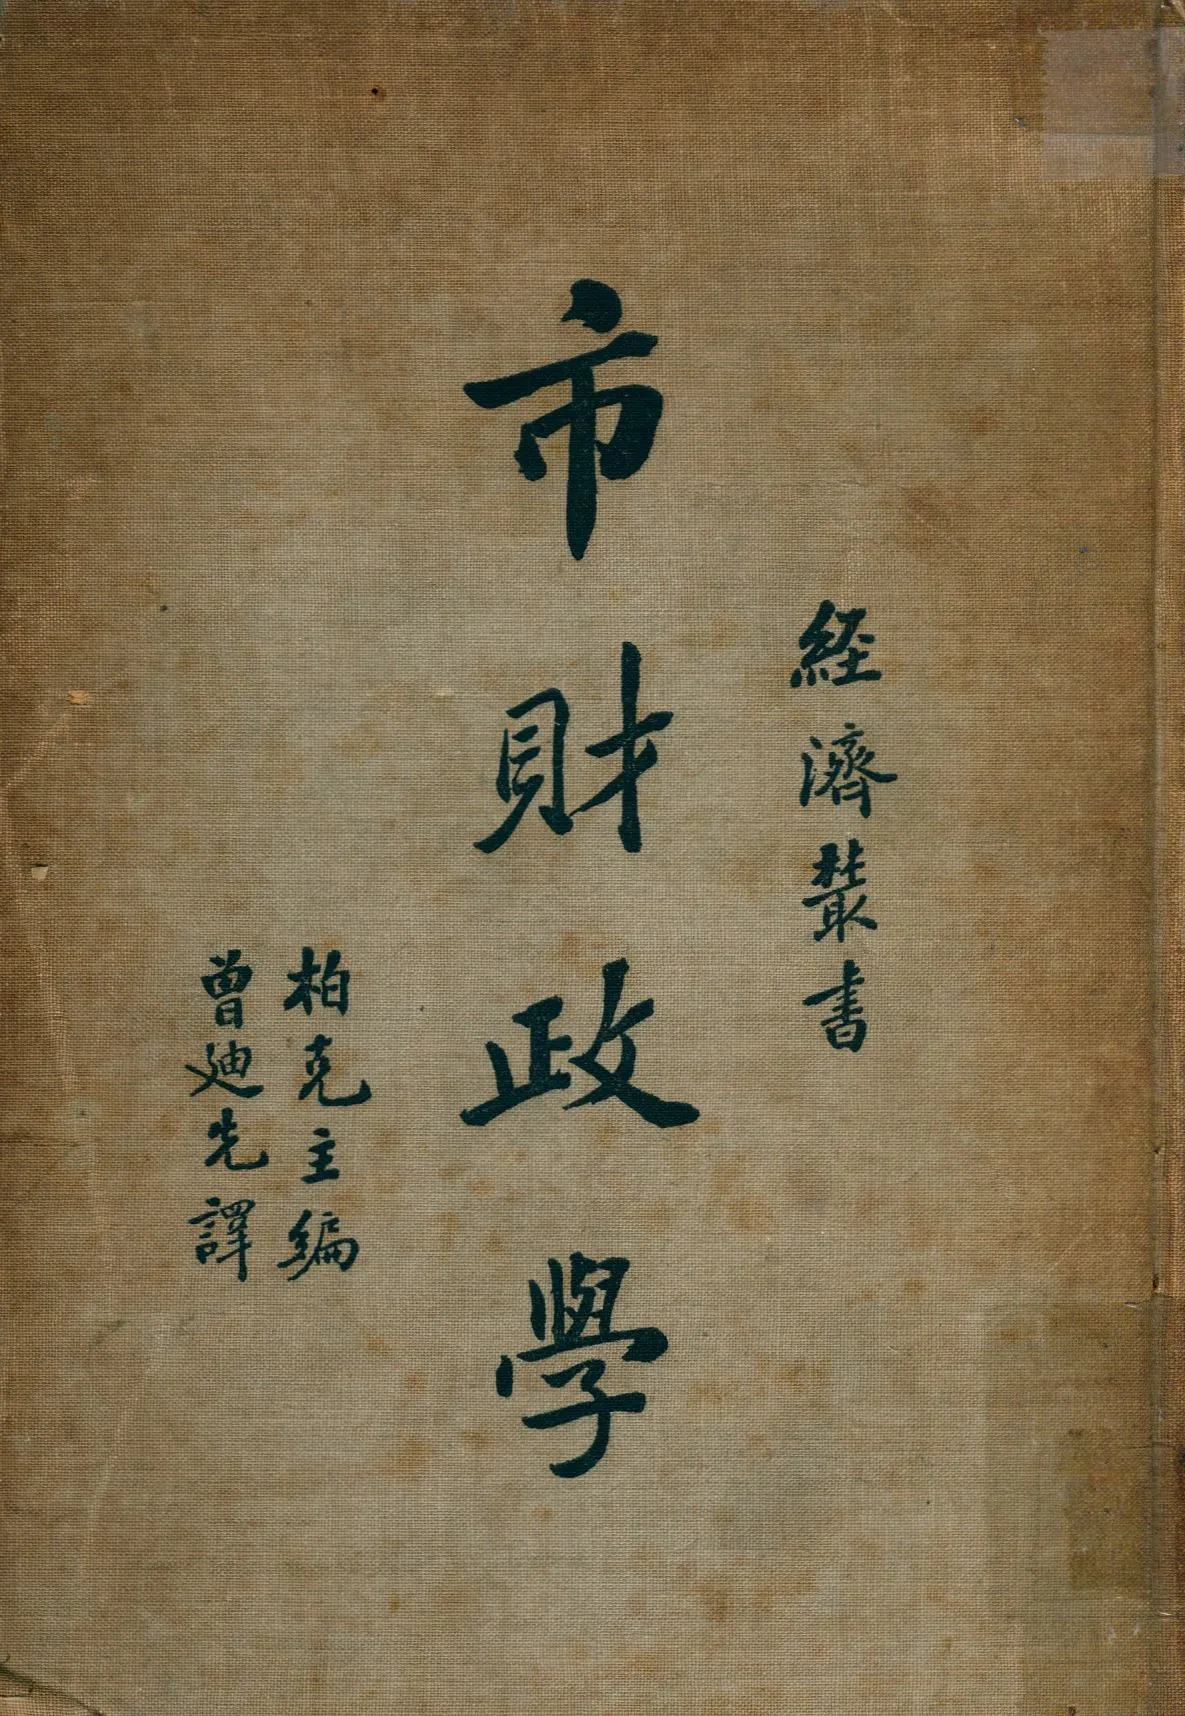 經濟叢書
市財政學
柏克主編
曾廸先譯